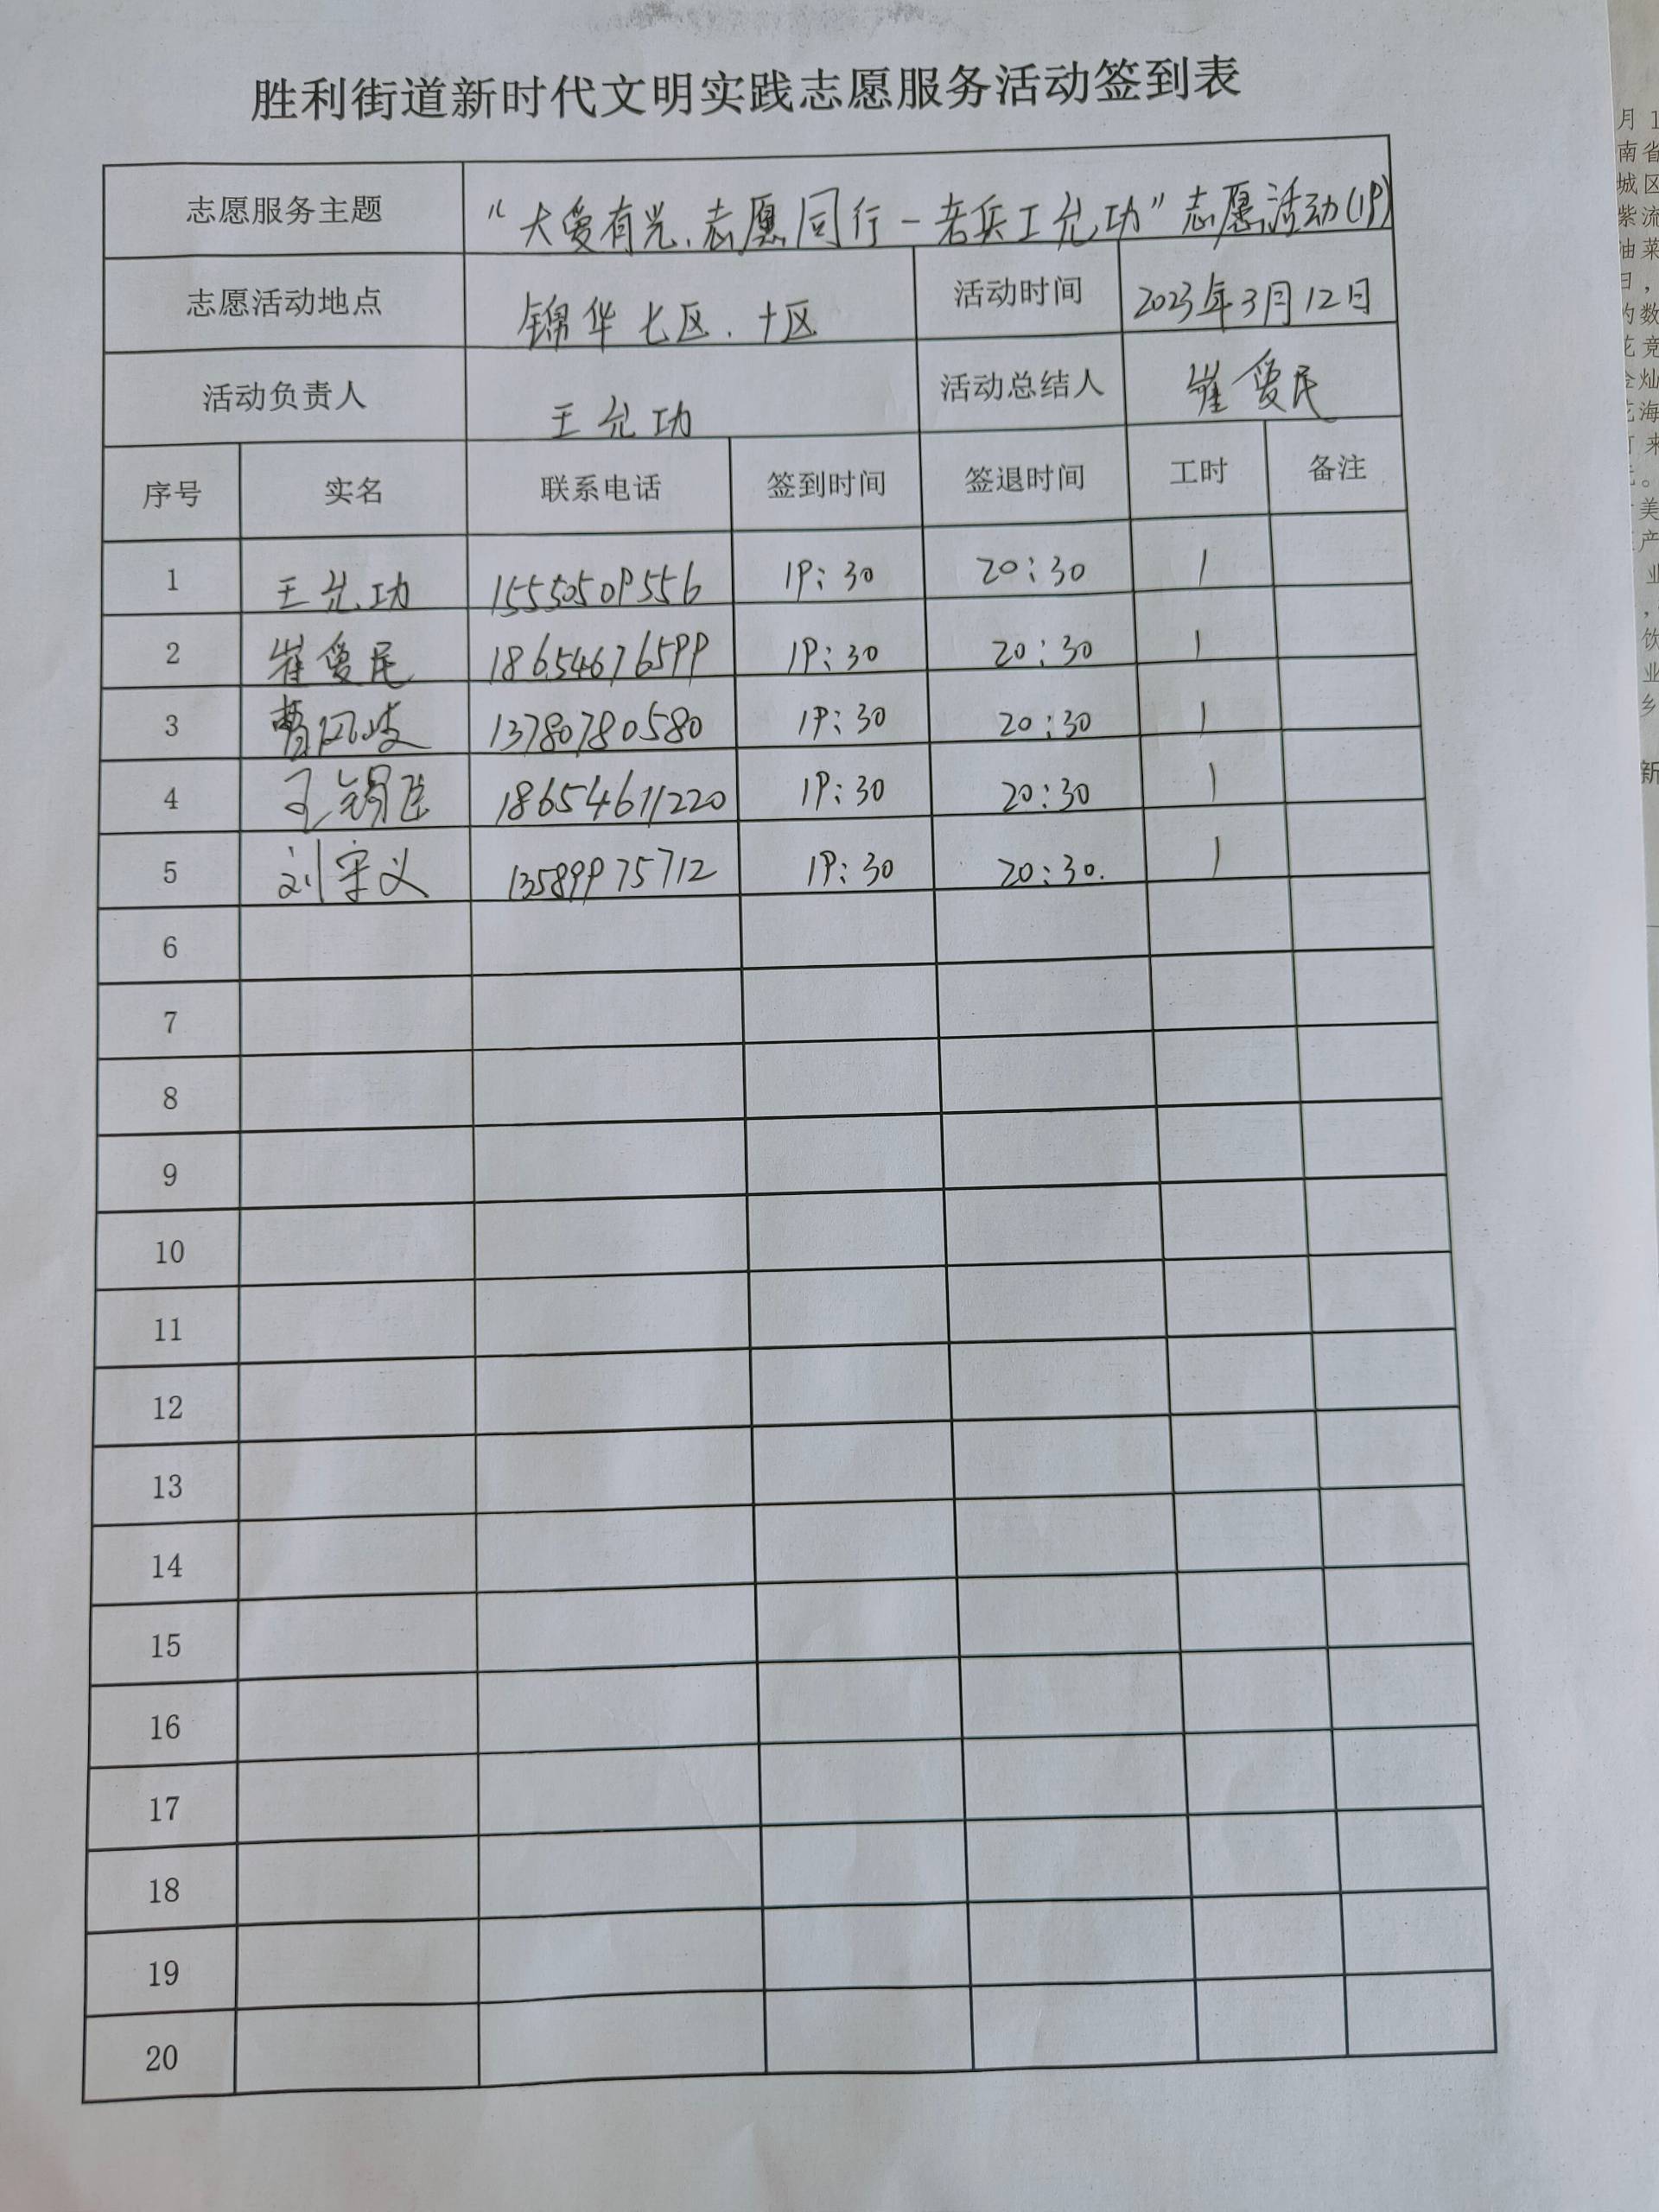 胜利街道新时代文明实践志愿服务活动签到表
志愿服务主题 “大爱有光.志愿同行-老兵王允功”志愿活动(19)
志愿活动地点 锦华七区.十区 活动时间 2023年3月12日
活动负责人 王允功 活动总结人 崔爱民
序号 实名 联系电话 签到时间 签退时间 工时 备注
1 王允功 15550509556 19:30 20:30 1
2 崔爱民 18654676599 19:30 20:30 1
3 曹风岐 13780780580 19:30 20:30 1
4 18654671220 19:30 20:30 1
5 刘守义 13589975712 19:30 20:30.  1
6
7
8
9
10
11
12
13
14
15
16
17
18
19
20
月1
南省
城区
紫流
油菜
日,
的数
花竞
金灿
花海
打来
美
产
业
饮
业
乡
新